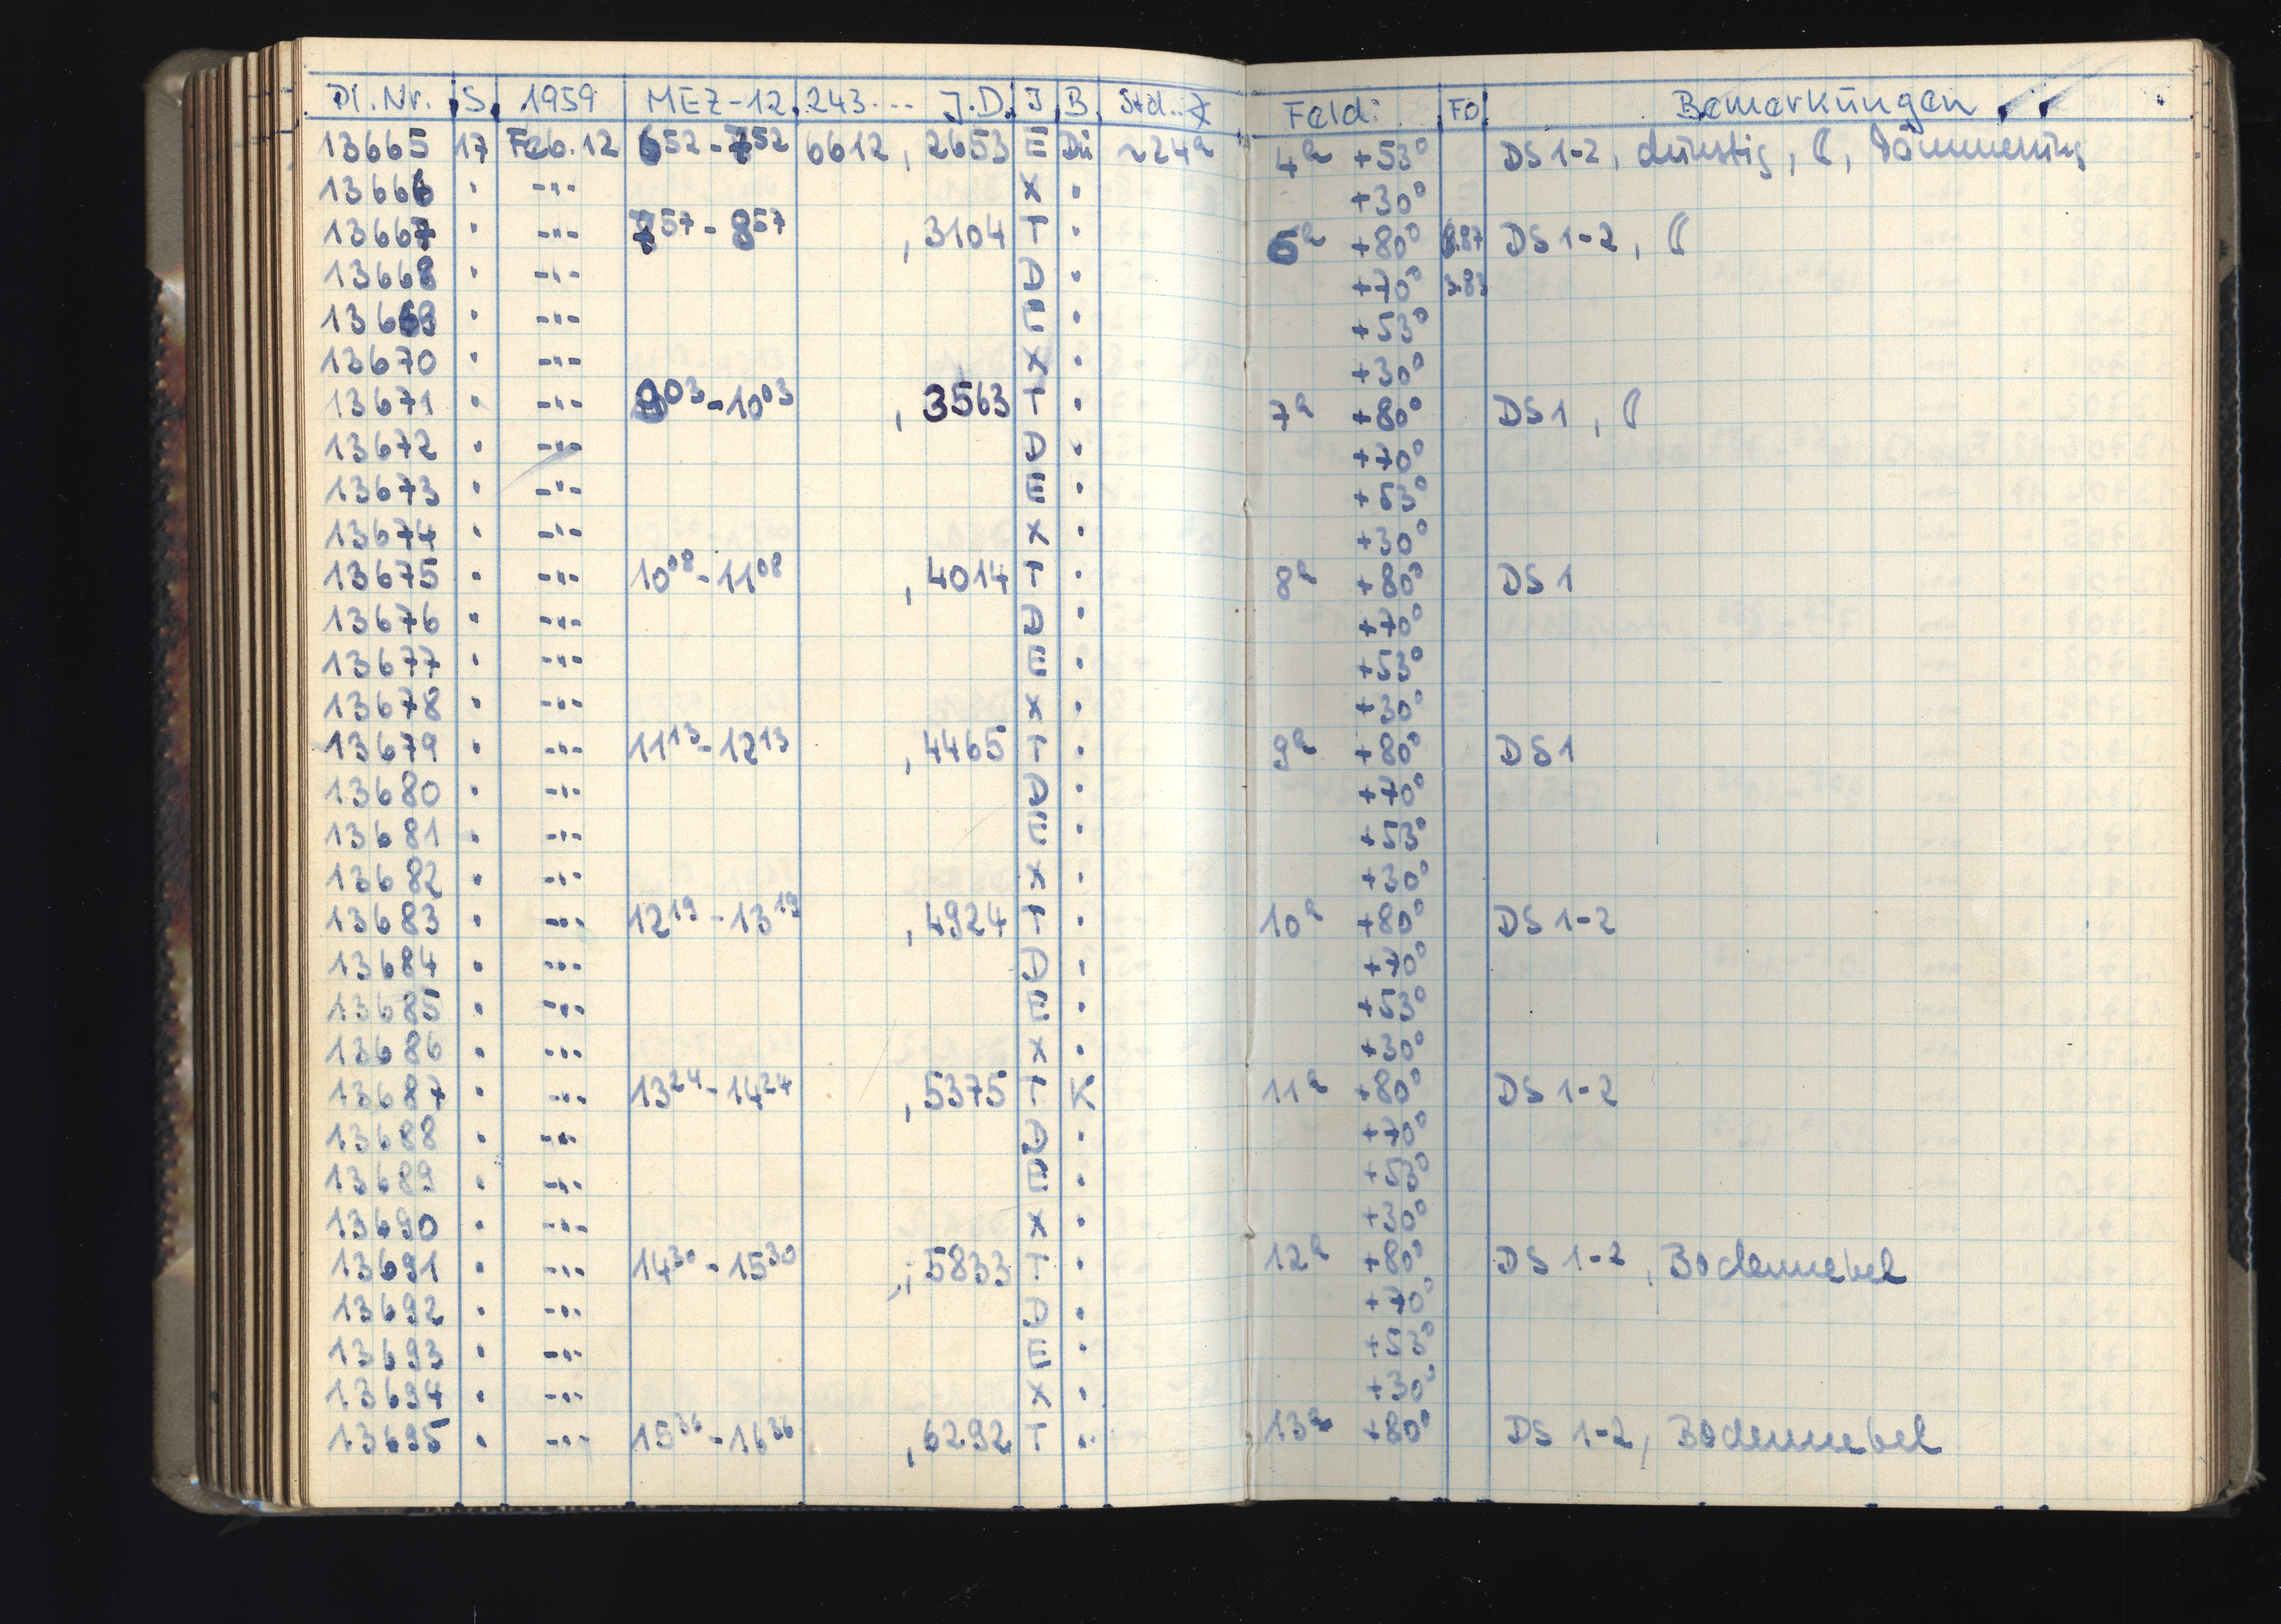 Pl. Nr. S. 1959 MEZ-12 243... J.D. I B. Std. ∢ Feld: Fo. Bemerkungen
13665 17 Feb. 12 6 52 - 7 52 6612 , 2653 E Dü ~24h 4h +53° DS 1-2, dunstig, ☾, Dämmerung
13666 " -"- X " +30°
13667 " -"- 7 57 - 8 57 , 3104 T " 6h +80° DS 1-2, ☾
13668 " -"- D " +70°
13669 " -"- E " +53°
13670 " -"- X " +30°
13671 " -"- 9 03 - 10 03 , 3563 T " 7h +80° DS 1, ☾
13672 " -"- D " +70°
13673 " -"- E " +53°
13674 " -"- X " +30°
13675 " -"- 10 08 - 11 08 , 4014 T " 8h +80° DS 1
13676 " -"- D " +70°
13677 " -"- E " +53°
13678 " -"- X " +30°
13679 " -"- 11 13 - 12 13 , 4465 T " 9h +80° DS 1
13680 " -"- D " +70°
13681 " -"- E " +53°
13682 " -"- X " +30°
13683 " -"- 12 19 - 13 19 , 4924 T " 10h +80° DS 1-2
13684 " -"- D " +70°
13685 " -"- E " +53°
13686 " -"- X " +30°
13687 " -"- 13 24 - 14 24 , 5375 T K 11h +80° DS 1-2
13688 " -"- D " +70°
13689 " -"- E " +53°
13690 " -"- X " +30°
13691 " -"- 14 30 - 15 30 , 5833 T " 12h +80° DS 1-2, Bodennebel
13692 " -"- D " +70°
13693 " -"- E " +53°
13694 " -"- X " +30°
13695 " -"- 15 36 - 16 36 , 6292 T " 13h +80° DS 1-2, Bodennebel